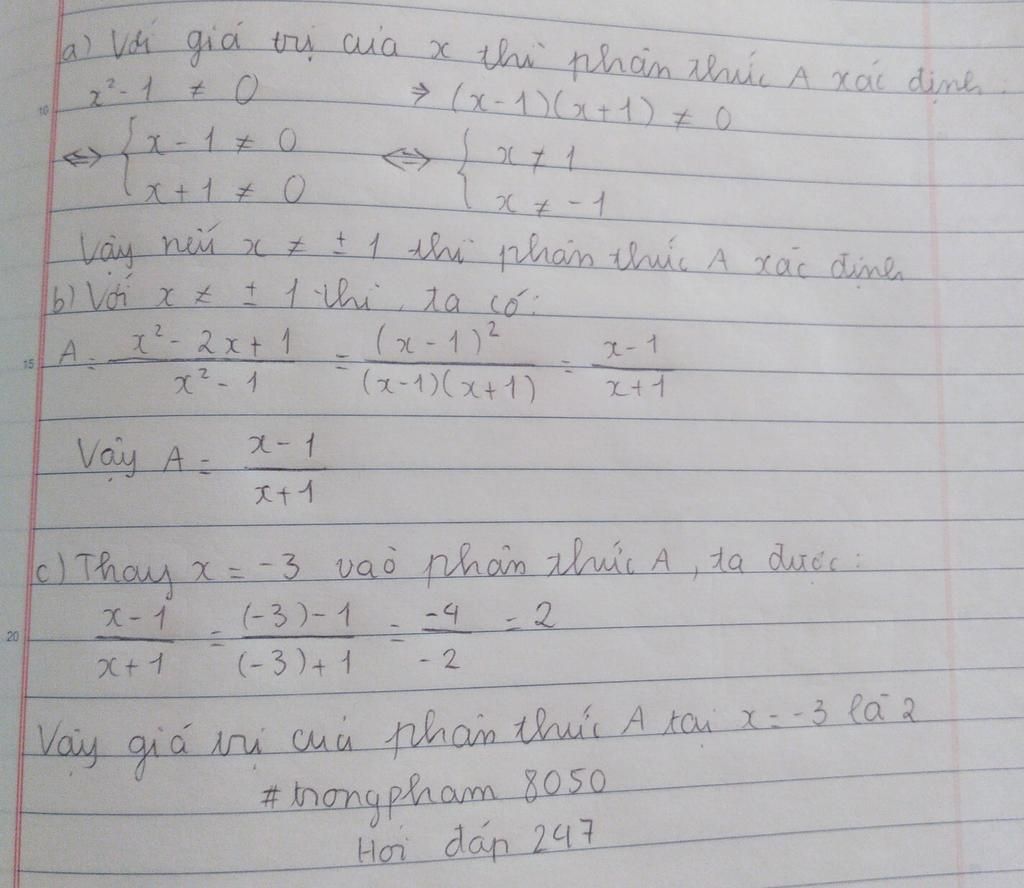 a) Với giá trị của x thì phân thức A xác định :
x² - 1 ≠ 0 ⇒ (x-1)(x+1) ≠ 0
⇔ { x - 1 ≠ 0 ⇔ { x ≠ 1
x + 1 ≠ 0 x ≠ -1
Vậy nếu x ≠ ± 1 thì phân thức A xác định
b) Với x ≠ ± 1 thì, ta có:
A = (x² - 2x + 1)/(x² - 1) = (x - 1)²/((x-1)(x+1)) = (x-1)/(x+1)
Vậy A = (x-1)/(x+1)
c) Thay x = -3 vào phân thức A, ta được:
(x-1)/(x+1) = ((-3)-1)/((-3)+1) = -4/-2 = 2
Vậy giá trị của phân thức A tại x = -3 là 2
# trongpham 8050
Hỏi đáp 247
10
15
20